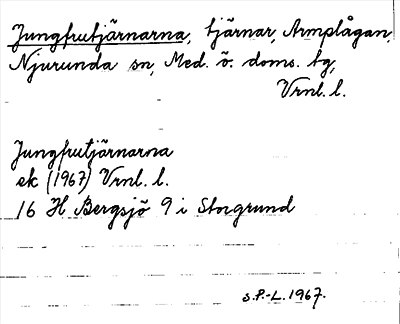 Jungfrutjärnarna, tjärnar, Armplågan,
Njurunda sn, Med. ö. doms. tg,
Vrnl. l.
Jungfrutjärnarna
ek (1967) Vrnl. l.
16 H Bergsjö 9 i Storgrund
S.P.-L. 1967.